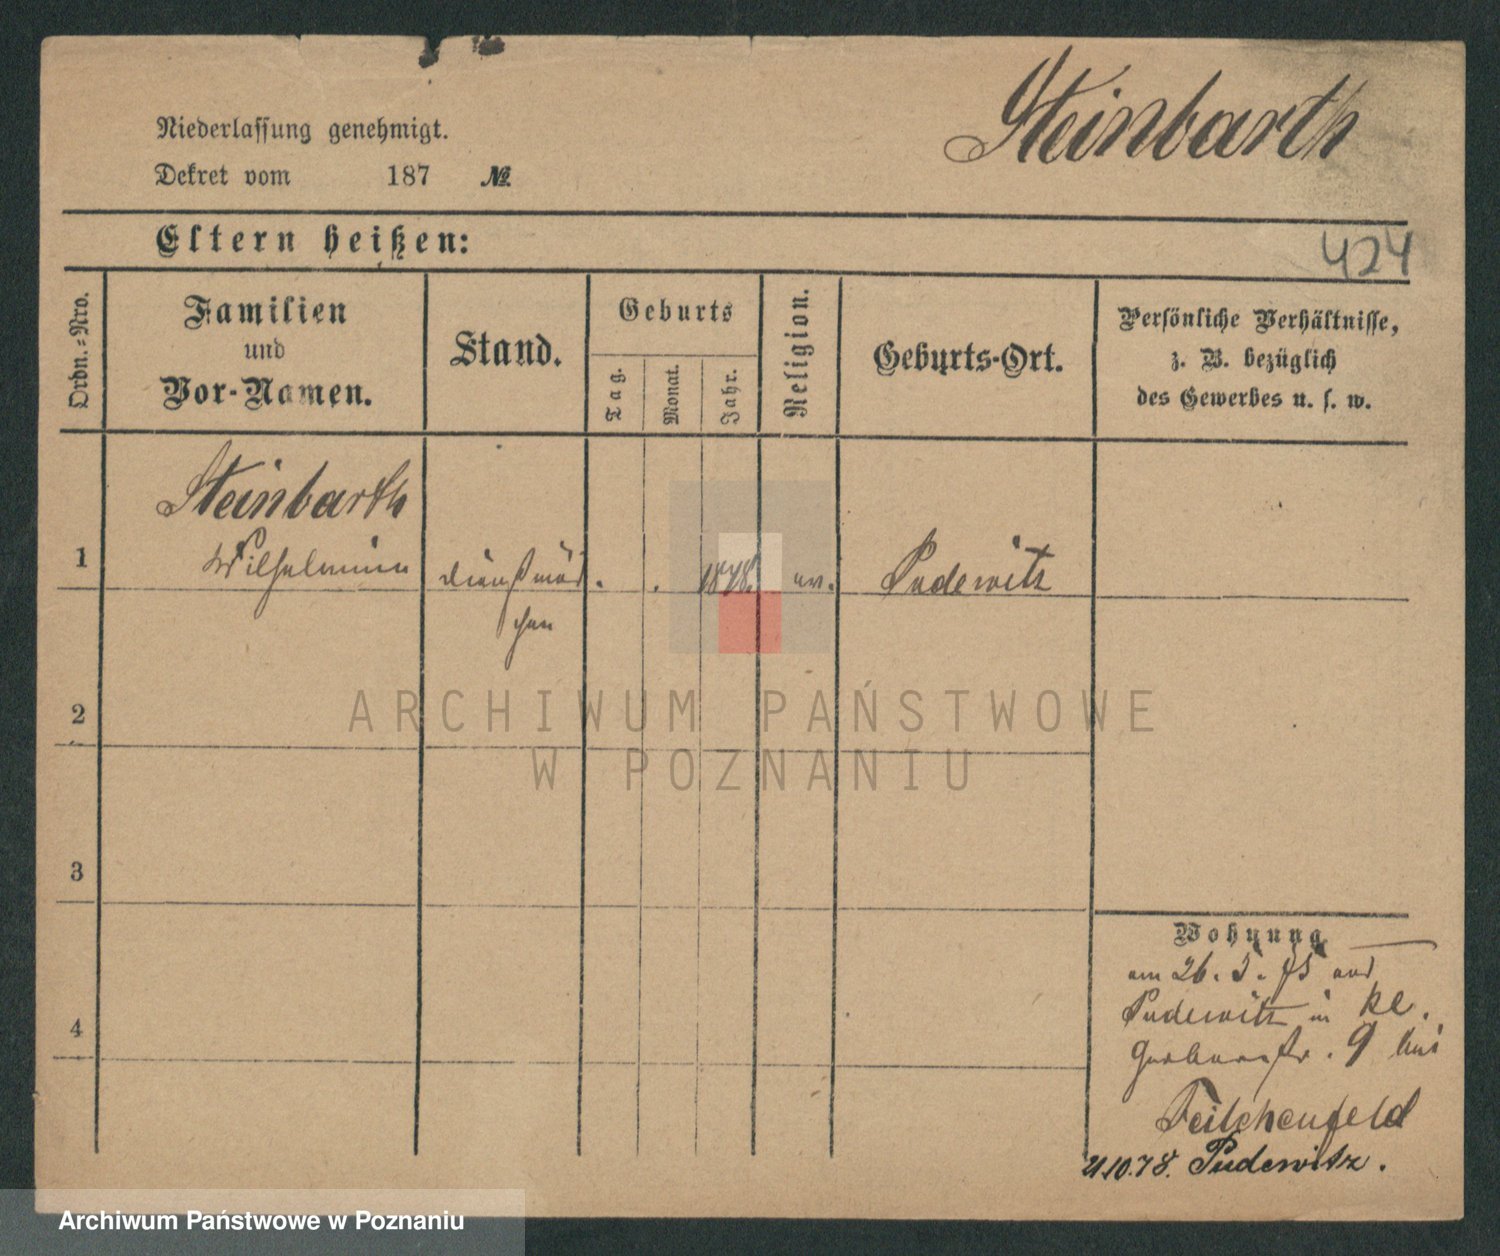 Steinbarth
Niederlassung genehmigt.
Dekret vom 187 №
Eltern heißen:
424
Ordn.-Nro.
Familien
und
Vor-Namen.
Stand.
Geburts
Tag.
Monat.
Jahr.
Religion.
Geburts-Ort.
Persönliche Verhältnisse,
z. B. bezüglich
des Gewerbes u. s. w.
Steinbarth
1 Wilhelmine Dienstmäd . . ev. Pudewitz
chen
2
ARCHIWUM PAŃSTWOWE
W POZNANIU
3
Wohnung
am 26. 3. 75 aus
Pudewitz in kl.
4
Gerberstr. 9 bei
Feilchenfeld
Pudewitz.
Archiwum Państwowe w Poznaniu